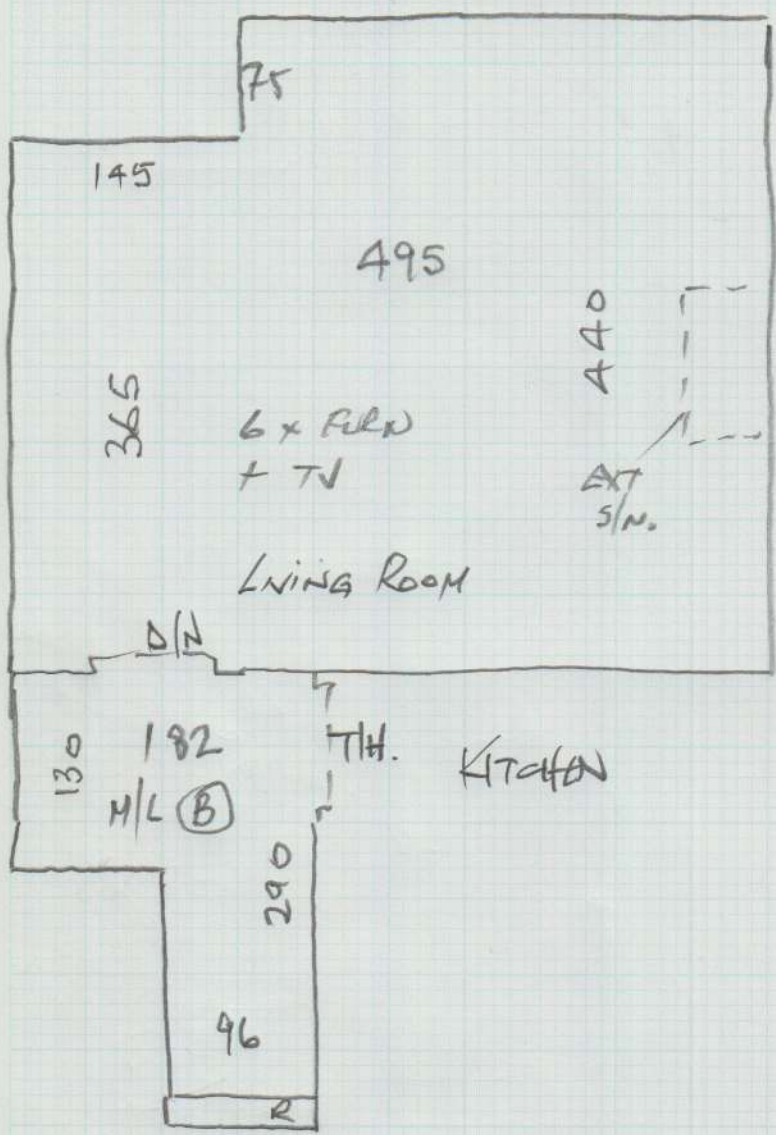 75
145
495
440
365
6 x FURN
+ TV
EXT
S/N.
LIVING ROOM
D/N
182
T/H.
KITCHEN
130
M/L (B)
290
96
R